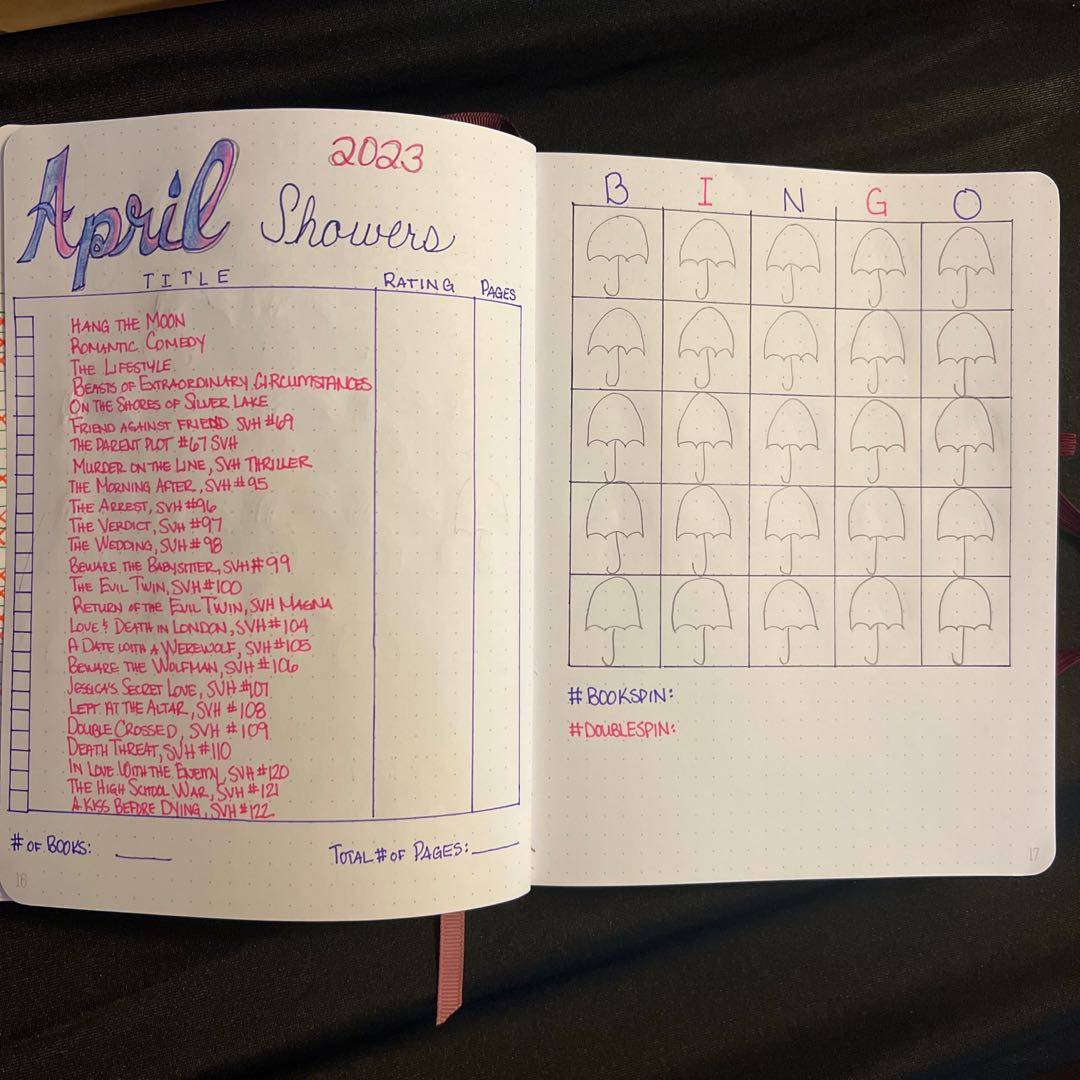 2023
April Showers
TITLE RATING PAGES
HANG THE MOON
ROMANTIC COMEDY
THE LIFESTYLE
BEASTS OF EXTRAORDINARY CIRCUMSTANCES
ON THE SHORES OF SILVER LAKE
FRIEND AGAINST FRIEND SVH #69
THE PARENT PLOT #67 SVH
MURDER ON THE LINE, SVH THRILLER
THE MORNING AFTER, SVH #95
THE ARREST, SVH #96
THE VERDICT, SVH #97
THE WEDDING, SVH #98
BEWARE THE BABYSITTER, SVH #99
THE EVIL TWIN, SVH #100
RETURN OF THE EVIL TWIN, SVH MAGNA
LOVE & DEATH IN LONDON, SVH #104
A DATE WITH A WEREWOLF, SVH #105
BEWARE THE WOLFMAN, SVH #106
JESSICA'S SECRET LOVE, SVH #107
LEFT AT THE ALTAR, SVH #108
DOUBLE CROSSED, SVH #109
DEATH THREAT, SVH #110
IN LOVE WITH THE ENEMY, SVH #120
THE HIGH SCHOOL WAR, SVH #121
A KISS BEFORE DYING, SVH #122
# OF BOOKS: TOTAL # OF PAGES:
16
B I N G O
#BOOKSPIN:
#DOUBLESPIN:
17